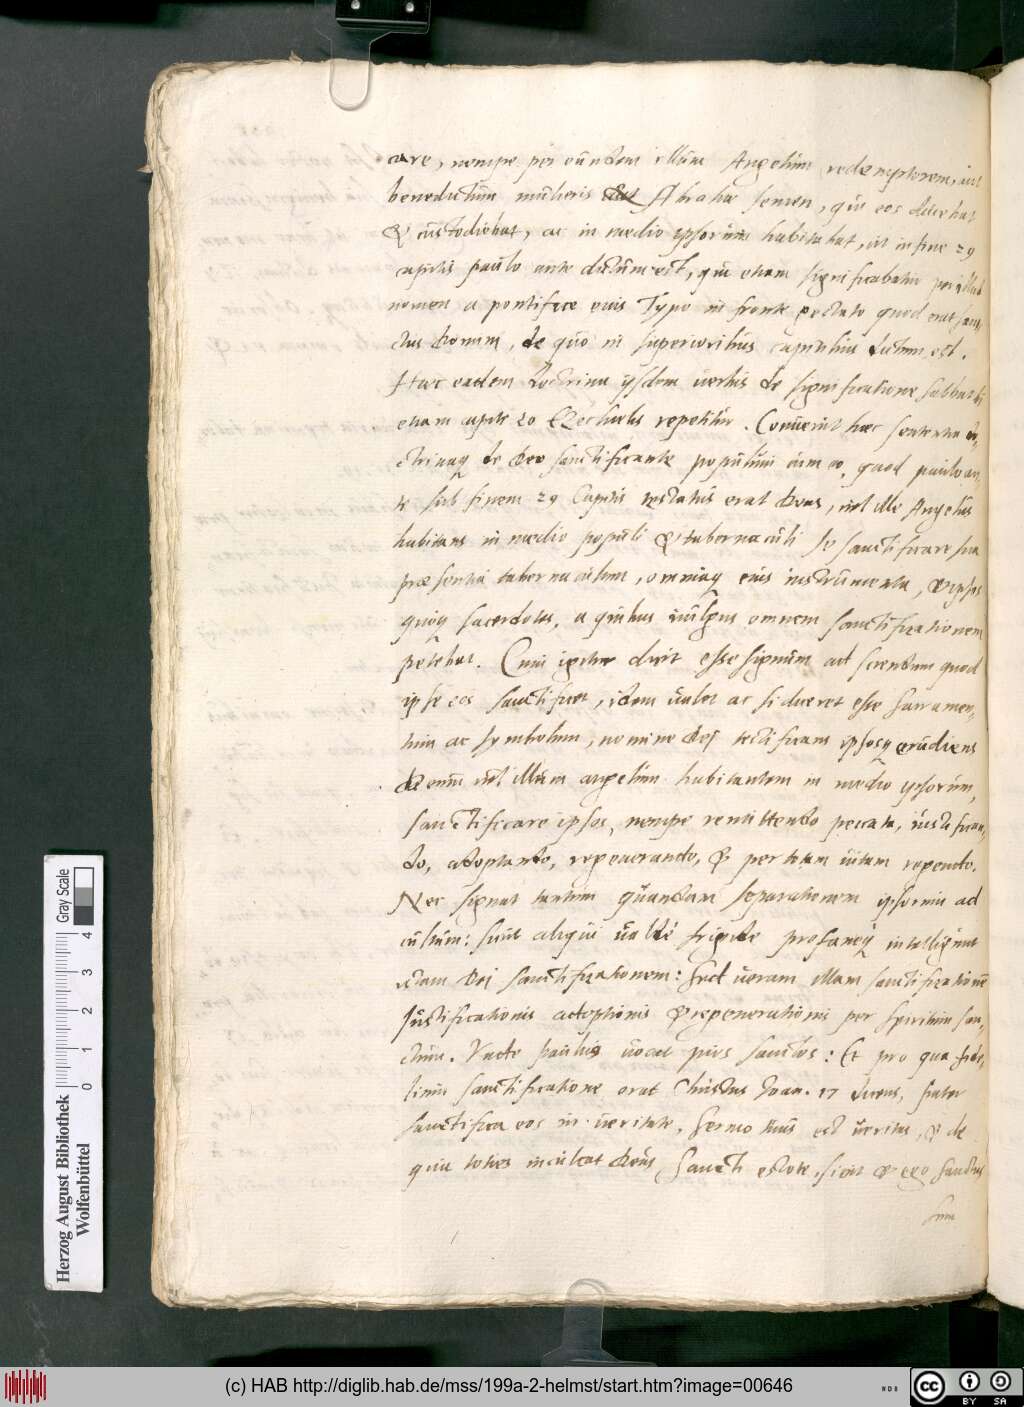 care, nempe per eundem illum Angelum redemptorem, seu
benedictum mulieris Abrahae semen, qui eos ducebat
& custodiebat, ac in medio ipsorum habitabat, ut in fine 29
capitis paulo ante dictum est, qui etiam significabatur per illud
nomen a pontifice eius Typo in fronte gestato quod erat sanc-
tus domini, de quo in superioribus capitibus dictum est.
Haec eadem doctrina ijsdem uerbis de significatione sabbati
etiam capite 20 Ezechielis repetitur. Conuenit haec sententia do-
ctrinaq de deo sanctificante populum cum eo, quod paulo an-
te sub finem 29 Capitis testatus erat deus, uel ille Angelus
habitans in medio populi & tabernaculi se sanctificare sua
praesentia tabernaculum, omniaq eius instrumenta, & ipsos
quoq sacerdotes, a quibus uulgus omnem sanctificationem
petebat. Cum igitur dicit esse signum ad sciendum quod
ipse eos sanctificet, idem ualet ac si diceret esse sacramen-
tum ac symbolum, nomine dej testificans ipsosq erudiens
deum uel illum angelum habitantem in medio ipsorum,
sanctificare ipsos, nempe remittendo peccata, iustifican-
do, adoptando, regenerando, & per totam uitam regendo.
Nec signat tantum quandam separationem ipsorum ad
cultum: sicut aliqui ualde frigide profaneq intelligunt
etiam Dej sanctificationem: sed ueram illam sanctificationē
Justificationis adoptionis & regenerationis per spiritum san-
ctum. Unde paulus uocat pios sanctos: Et pro qua fide-
lium sanctificatione orat Christus Joan. 17 dicens, pater
sanctifica eos in ueritate, sermo tuus est ueritas, & de
qua toties inculcat deus, Sancti estote, sicut & ego sanctus
sum
Herzog August Bibliothek
Wolfenbüttel
0 1 2 3 4
Gray Scale
(c) HAB http://diglib.hab.de/mss/199a-2-helmst/start.htm?image=00646
NDB
cc
BY SA